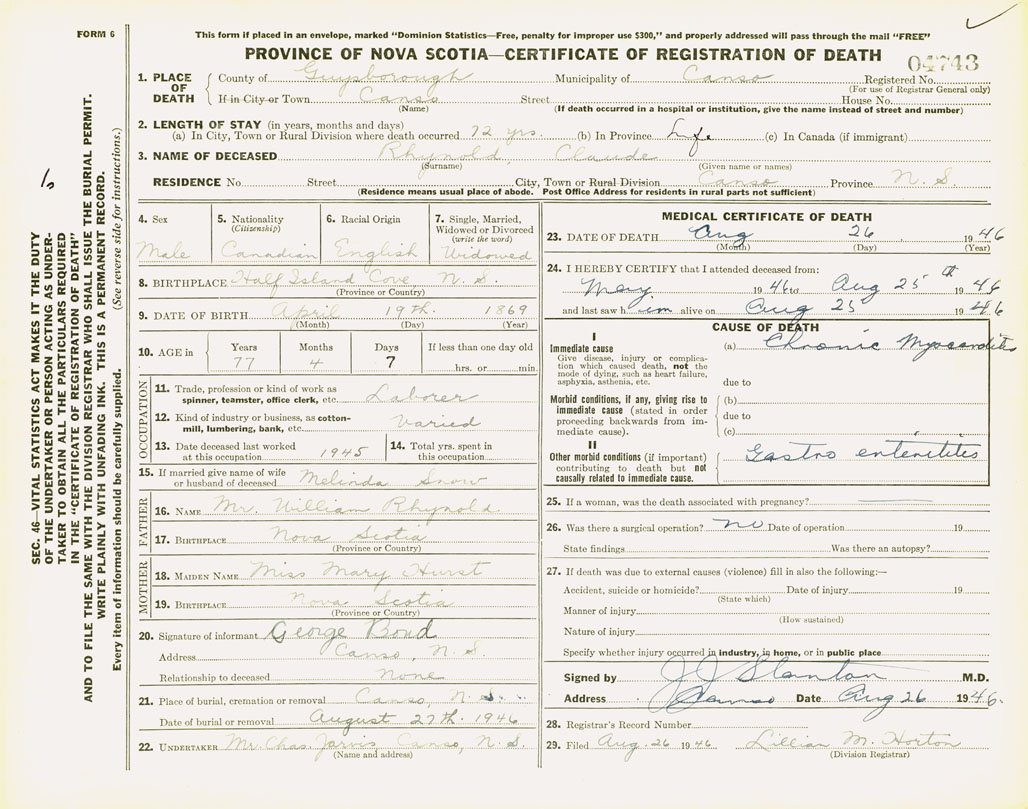 FORM 6
This form if placed in an envelope, marked "Dominion Statistics—Free, penalty for improper use $300," and properly addressed will pass through the mail "FREE"
PROVINCE OF NOVA SCOTIA—CERTIFICATE OF REGISTRATION OF DEATH
04743
1. PLACE OF DEATH
County of Guysborough Municipality of Canso Registered No.
(For use of Registrar General only)
If in City or Town Canso Street House No.
(Name) (If death occurred in a hospital or institution, give the name instead of street and number)
2. LENGTH OF STAY (in years, months and days)
(a) In City, Town or Rural Division where death occurred 72 yrs. (b) In Province Life (c) In Canada (if immigrant)
3. NAME OF DECEASED Rhynold, Claude
(Surname) (Given name or names)
RESIDENCE No. Street City, Town or Rural Division Canso Province N. S.
(Residence means usual place of abode. Post Office Address for residents in rural parts not sufficient)
4. Sex
Male
5. Nationality
(Citizenship)
Canadian
6. Racial Origin
English
7. Single, Married, Widowed or Divorced
(write the word)
Widowed
8. BIRTHPLACE Half Island Cove, N. S.
(Province or Country)
9. DATE OF BIRTH April 19th. 1869
(Month) (Day) (Year)
10. AGE in
Years Months Days If less than one day old
77 4 7 hrs. or min.
OCCUPATION
11. Trade, profession or kind of work as
spinner, teamster, office clerk, etc. Laborer
12. Kind of industry or business, as cotton-
mill, lumbering, bank, etc. Varied
13. Date deceased last worked
at this occupation 1945
14. Total yrs. spent in
this occupation
15. If married give name of wife
or husband of deceased Melinda Snow
FATHER
16. NAME Mr. William Rhynold
17. BIRTHPLACE Nova Scotia
(Province or Country)
MOTHER
18. MAIDEN NAME Miss Mary Hurst
19. BIRTHPLACE Nova Scotia
(Province or Country)
20. Signature of informant George Bond
Address Canso, N. S.
Relationship to deceased None
21. Place of burial, cremation or removal Canso, N. S.
Date of burial or removal August 27th. 1946
22. UNDERTAKER Mr. Chas. Jarvis Canso, N. S.
(Name and address)
MEDICAL CERTIFICATE OF DEATH
23. DATE OF DEATH Aug 26 1946
(Month) (Day) (Year)
24. I HEREBY CERTIFY that I attended deceased from:
May 1946 to Aug 25th 1946
and last saw him alive on Aug 25 1946
CAUSE OF DEATH
I
Immediate cause
Give disease, injury or complica-
tion which caused death, not the
mode of dying, such as heart failure,
asphyxia, asthenia, etc.
(a) Chronic Myocarditis
due to
Morbid conditions, if any, giving rise to
immediate cause (stated in order
proceeding backwards from im-
mediate cause).
(b)
due to
(c)
II
Other morbid conditions (if important)
contributing to death but not
causally related to immediate cause.
Gastro enteritites
25. If a woman, was the death associated with pregnancy?
26. Was there a surgical operation? no Date of operation 19
State findings Was there an autopsy?
27. If death was due to external causes (violence) fill in also the following:—
Accident, suicide or homicide? Date of injury 19
(State which)
Manner of injury
(How sustained)
Nature of injury
Specify whether injury occurred in industry, in home, or in public place
Signed by J J Stanton M.D.
Address Canso Date Aug 26 1946.
28. Registrar's Record Number
29. Filed Aug. 26 1946 Lillian M. Horton
(Division Registrar)
SEC. 46—VITAL STATISTICS ACT MAKES IT THE DUTY
OF THE UNDERTAKER OR PERSON ACTING AS UNDER-
TAKER TO OBTAIN ALL THE PARTICULARS REQUIRED
IN THE "CERTIFICATE OF REGISTRATION OF DEATH"
AND TO FILE THE SAME WITH THE DIVISION REGISTRAR WHO SHALL ISSUE THE BURIAL PERMIT.
WRITE PLAINLY WITH UNFADING INK. THIS IS A PERMANENT RECORD.
Every item of information should be carefully supplied. (See reverse side for instructions.)